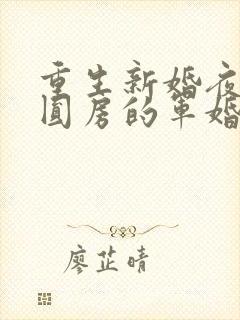 重生新婚夜
圆房的军婚
廖芷晴